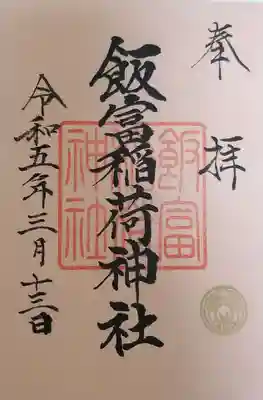 奉拝
飯富稲荷神社
飯富
稲荷
神社
令和五年三月十三日